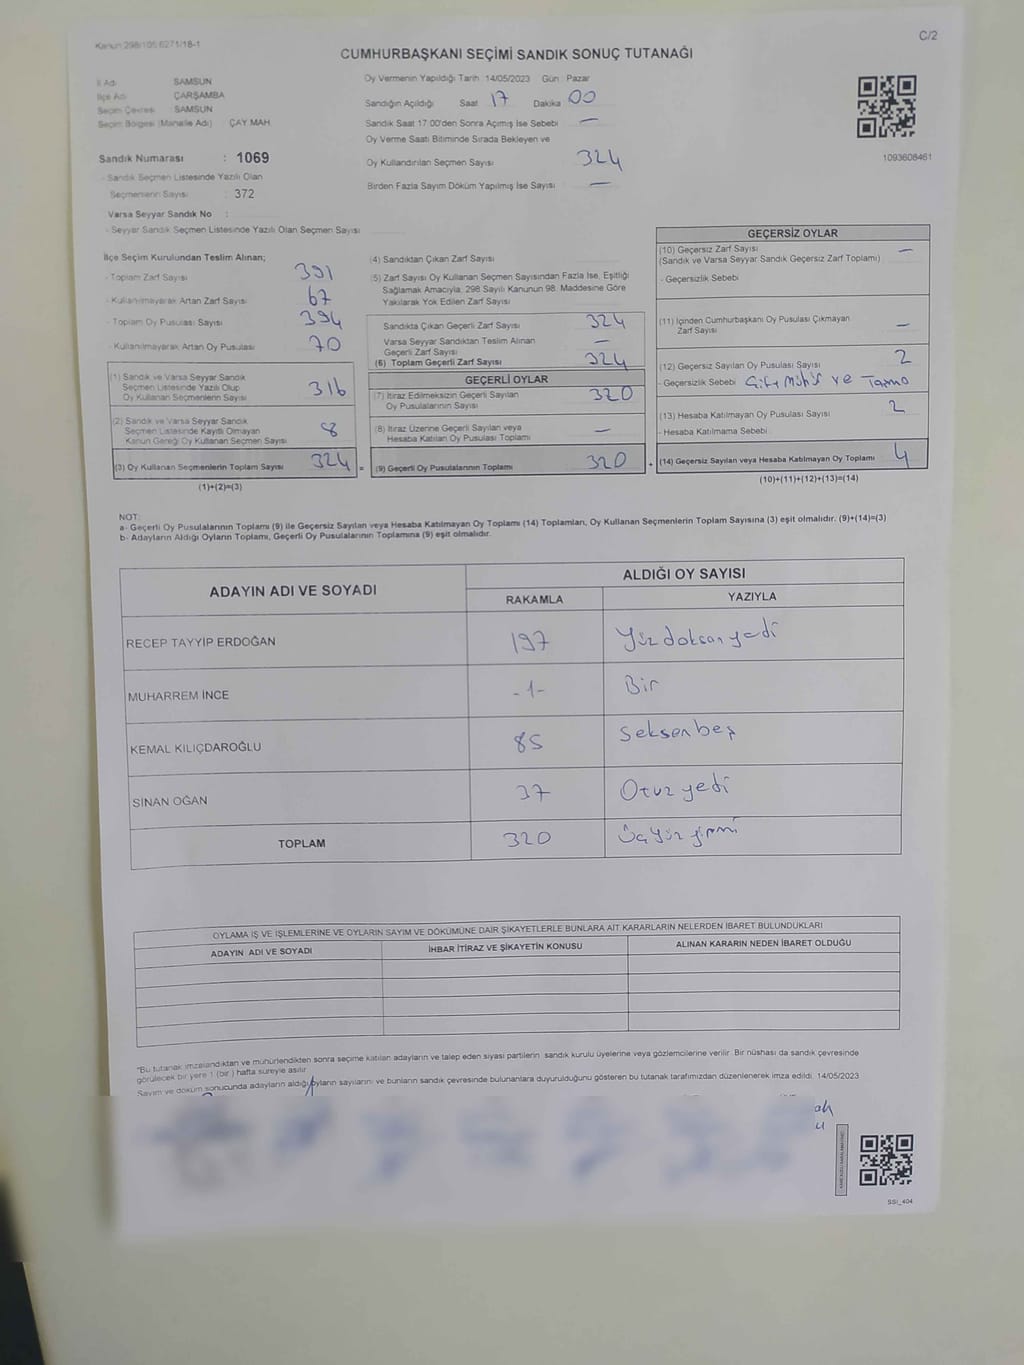 Kanun:298/105,6271/18-1
C/2
CUMHURBAŞKANI SEÇİMİ SANDIK SONUÇ TUTANAĞI
İl Adı SAMSUN
İlçe Adı ÇARŞAMBA
Seçim Çevresi SAMSUN
Seçim Bölgesi (Mahalle Adı) ÇAY MAH
Sandık Numarası : 1069
- Sandık Seçmen Listesinde Yazılı Olan
Seçmenlerin Sayısı : 372
Varsa Seyyar Sandık No :
- Seyyar Sandık Seçmen Listesinde Yazılı Olan Seçmen Sayısı
Oy Vermenin Yapıldığı Tarih 14/05/2023 Gün : Pazar
Sandığın Açıldığı Saat 17 Dakika 00
Sandık Saat 17:00'den Sonra Açımış İse Sebebi —
Oy Verme Saati Bitiminde Sırada Bekleyen ve
Oy Kullandırılan Seçmen Sayısı 324
Birden Fazla Sayım Döküm Yapılmış İse Sayısı —
1093608461
İlçe Seçim Kurulundan Teslim Alınan;
- Toplam Zarf Sayısı 391
- Kullanılmayarak Artan Zarf Sayısı 67
- Toplam Oy Pusulası Sayısı 394
- Kullanılmayarak Artan Oy Pusulası 70
(1) Sandık ve Varsa Seyyar Sandık
Seçmen Listesinde Yazılı Olup
Oy Kullanan Seçmenlerin Sayısı 316
(2) Sandık ve Varsa Seyyar Sandık
Seçmen Listesinde Kayıtlı Olmayan
Kanun Gereği Oy Kullanan Seçmen Sayısı 8
(3) Oy Kullanan Seçmenlerin Toplam Sayısı 324 =
(1)+(2)=(3)
(4) Sandıktan Çıkan Zarf Sayısı
(5) Zarf Sayısı Oy Kullanan Seçmen Sayısından Fazla İse, Eşitliği
Sağlamak Amacıyla, 298 Sayılı Kanunun 98. Maddesine Göre
Yakılarak Yok Edilen Zarf Sayısı
Sandıkta Çıkan Geçerli Zarf Sayısı 324
Varsa Seyyar Sandıktan Teslim Alınan
Geçerli Zarf Sayısı —
(6) Toplam Geçerli Zarf Sayısı 324
GEÇERLİ OYLAR
(7) İtiraz Edilmeksizin Geçerli Sayılan
Oy Pusulalarının Sayısı 320
(8) İtiraz Üzerine Geçerli Sayılan veya
Hesaba Katılan Oy Pusulası Toplamı —
(9) Geçerli Oy Pusulalarının Toplamı 320 +
GEÇERSİZ OYLAR
(10) Geçersiz Zarf Sayısı —
(Sandık ve Varsa Seyyar Sandık Geçersiz Zarf Toplamı)
- Geçersizlik Sebebi
(11) İçinden Cumhurbaşkanı Oy Pusulası Çıkmayan
Zarf Sayısı —
(12) Geçersiz Sayılan Oy Pusulası Sayısı 2
- Geçersizlik Sebebi Çift Mühür ve
(13) Hesaba Katılmayan Oy Pusulası Sayısı 2
- Hesaba Katılmama Sebebi
(14) Geçersiz Sayılan veya Hesaba Katılmayan Oy Toplamı 4
(10)+(11)+(12)+(13)=(14)
NOT:
a- Geçerli Oy Pusulalarının Toplamı (9) ile Geçersiz Sayılan veya Hesaba Katılmayan Oy Toplamı (14) Toplamları, Oy Kullanan Seçmenlerin Toplam Sayısına (3) eşit olmalıdır. (9)+(14)=(3)
b- Adayların Aldığı Oyların Toplamı, Geçerli Oy Pusulalarının Toplamına (9) eşit olmalıdır.
ADAYIN ADI VE SOYADI
ALDIĞI OY SAYISI
RAKAMLA YAZIYLA
RECEP TAYYİP ERDOĞAN 197 Yüzdoksanyedi
MUHARREM İNCE -1- Bir
KEMAL KILIÇDAROĞLU 85 Seksenbeş
SİNAN OĞAN 37 Otuzyedi
TOPLAM 320 Üçyüzyirmi
OYLAMA İŞ VE İŞLEMLERİNE VE OYLARIN SAYIM VE DÖKÜMÜNE DAİR ŞİKAYETLERLE BUNLARA AİT KARARLARIN NELERDEN İBARET BULUNDUKLARI
ADAYIN ADI VE SOYADI İHBAR İTİRAZ VE ŞİKAYETİN KONUSU ALINAN KARARIN NEDEN İBARET OLDUĞU
*Bu tutanak imzalandıktan ve mühürlendikten sonra seçime katılan adayların ve talep eden siyasi partilerin sandık kurulu üyelerine veya gözlemcilerine verilir. Bir nüshası da sandık çevresinde
görülecek bir yere 1 (bir) hafta süreyle asılır.
Sayım ve döküm sonucunda adayların aldığı oyların sayılarını ve bunların sandık çevresinde bulunanlara duyurulduğunu gösteren bu tutanak tarafımızdan düzenlenerek imza edildi. 14/05/2023
SSİ_404